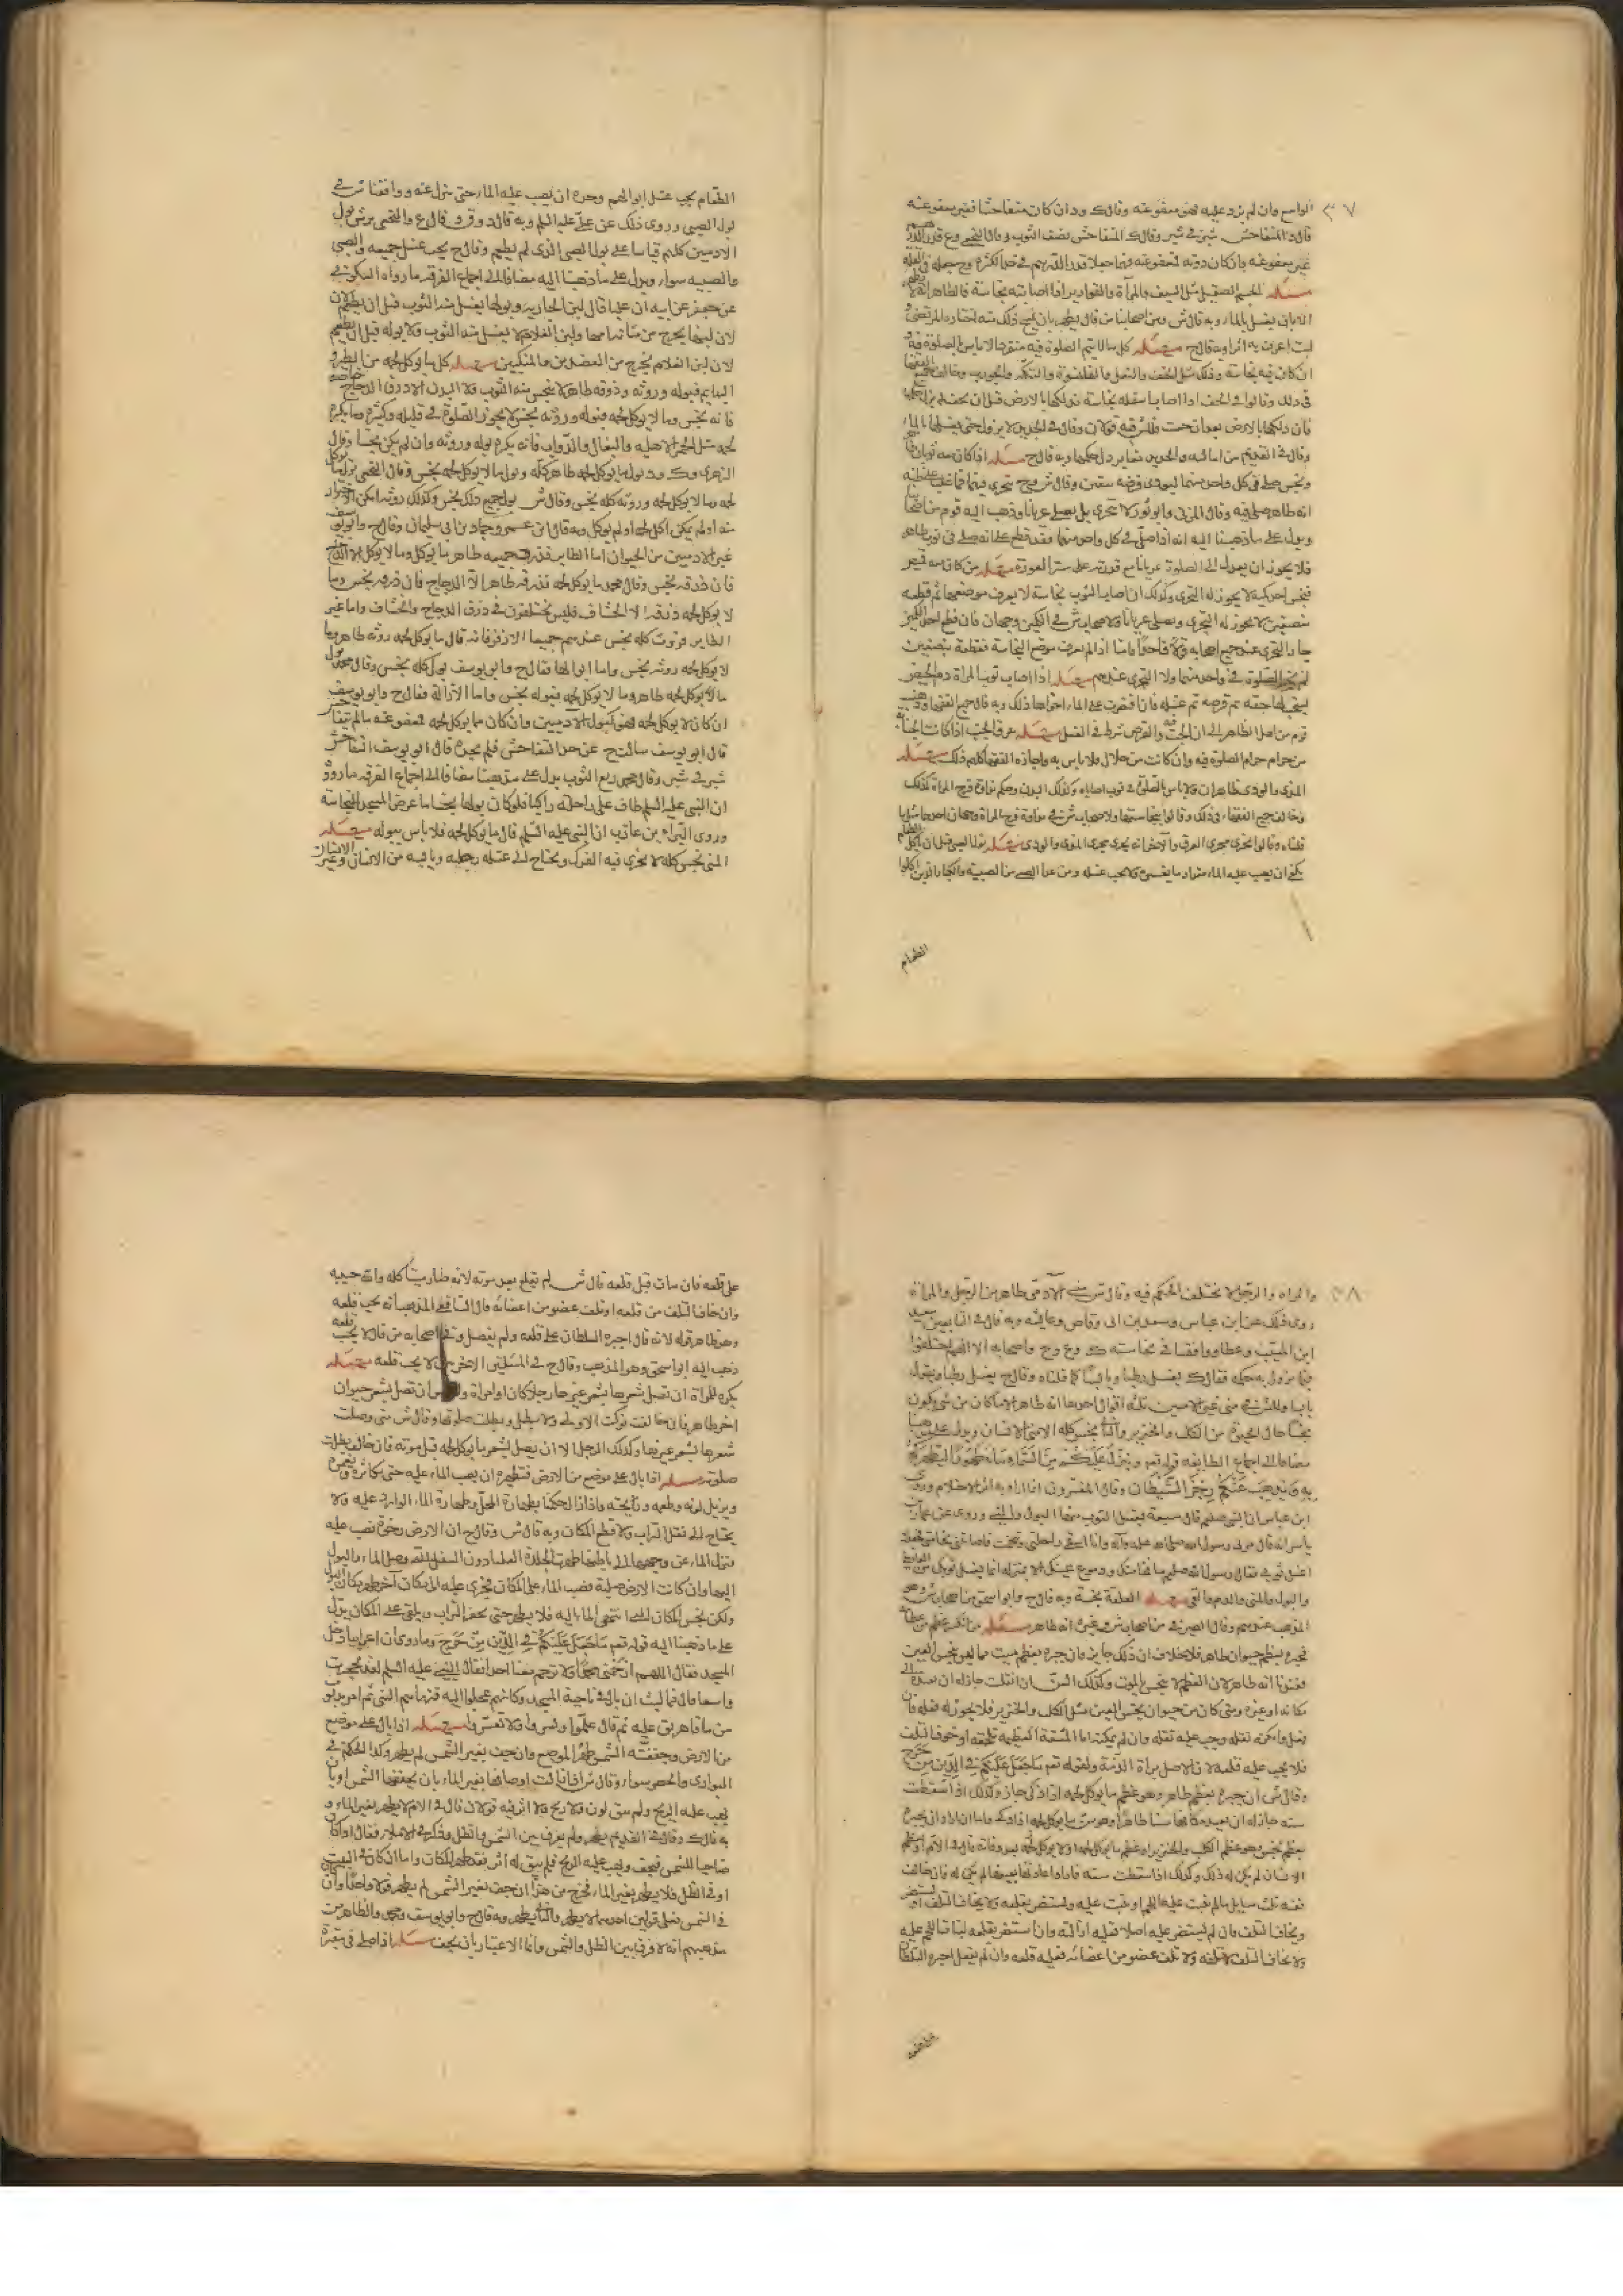 ٣٧
الواسع وان لم يزد عليه فهو معفو عنه وقال ك ود ان كان متفاحشا فغير معفو عنه
قال د المتفاحش شبر في شبر وقال ك المتفاحش نصف الثوب وقال النخعي وع قدر الدرهم
غير معفو عنه فان كان دونه فمعفو عنه
مسئلة الجسم الصقيل مثل السيف والمرآة والقوارير اذا اصابته نجاسة فالظاهر انه لا يطهر
الا بان يغسل بالماء وبه قال ش ومن اصحابنا من قال يطهر بان يمسح ذلك منه اختاره المرتضى و
لست اعرف به اثرا وبه قال ح مسئله كل ما لا يتم الصلوة فيه منفردا لا باس بالصلوة فيه و
ان كان فيه نجاسة وذلك مثل الخف والنعل والقلنسوة والتكة والجورب وخالف جميع الفقهاء
في ذلك وقالوا في الخف اذا اصاب اسفله نجاسة فدلكها بالارض قبل ان يجف لم يزل حكمها
فان دلكها بالارض بعد ان جفت فللش فيه قولان وقال في الجديد لا يزول حتى يغسلها بالماء
وقال في القديم من اماليه والجديد معا يزول حكمها وبه قال ح مسئله اذا كان معه ثوبان طاهر
ونجس صلى في كل واحد منهما ليودي فرضه بيقين وقال ش وح يتحرى فيهما فما غلب على ظنه
انه طاهر صلى فيه وقال المزني وابو ثور لا يتحرى بل يصلي عريانا وذهب اليه قوم من اصحابنا
ويدل على ما ذهبنا اليه انه اذا صلى في كل واحد منهما فقد قطع على انه صلى في ثوب طاهر
فلا يجوز ان يعدل الى الصلوة عريانا مع قدرته على ستر العورة مسئله من كان معه قميص
فنجس احد كميه لا يجوز له التحري وكذلك ان اصاب الثوب نجاسة لا يعرف موضعها ثم قطعه
بنصفين لا يجوز له التحري ويصلي عريانا ولاصحاب ش في الكمين وجهان فان قطع احد الكمين
جاز التحري عند جميع اصحابه قولا واحدا فاما اذا لم يعرف موضع النجاسة فقطعه بنصفين
لم يجز الصلوة في واحد منهما ولا التحري عندهم مسئله اذا اصاب ثوب المراة دم الحيض
يستحب لها حته ثم قرصه ثم غسله فان اقتصرت على الماء اجزاها ذلك وبه قال جميع الفقهاء وذهب
قوم من اهل الظاهر الى ان الحت والقرص شرط في الغسل مسئله عرق الجنب اذا كانت الجنابة
من حرام حرام الصلوة فيه وان كانت من حلال فلا باس به واجازه الفقهاء كلهم ذلك مسئله
المذي والوذي طاهران ولا باس بالصلوة في ثوب اصاباه وكذلك البدن وحكم نداوة فرج المراة كذلك
وخالف جميع الفقهاء في ذلك وقالوا بنجاستها ولاصحاب ش في نداوة فرج المراة وجهان احدهما مثل ما
قلناه وقالوا تجري مجرى العرق والاخر انه يجري مجرى المذي والوذي مسئله بول الصبي قبل ان ياكل الطعام
يكفي ان يصب عليه الماء بمقدار ما يغمره ولا يجب غسله ومن عدا الصبي من الصبية والكبار الذين اكلوا
الطعام
الطعام يجب غسل ابوالهم وحده ان يصب عليه الماء حتى ينزل عنه ووافقنا ش في
بول الصبي وروي ذلك عن علي عليه السلم وبه قال د وق وقال ع والنخعي يرش بول
الادميين كلهم قياسا على بول الصبي الذي لم يطعم وقال ح يجب غسل جميعه والصبي
والصبيه سواء ويدل على ما ذهبنا اليه مضافا الى اجماع الفرقه ما رواه السكوني
عن جعفر عن ابيه ان عليا قال لبن الجاريه وبولها يغسل منه الثوب قبل ان يطعم لان
لان لبنها يخرج من مثانة امها ولبن الغلام لا يغسل منه الثوب ولا بوله قبل ان يطعم
لان لبن الغلام يخرج من العضدين والمنكبين مسئله كل ما يوكل لحمه من الطير و
البهايم فبوله وروثه وذرقه طاهر لا ينجس منه الثوب ولا البدن الا ذرق الدجاج خاصة
فانه نجس وما لا يوكل لحمه فبوله وروثه نجس لا يجوز الصلوة في قليله وكثيره وما يكره
لحمه مثل الحمر الاهليه والبغال والدواب فانه يكره بوله وروثه وان لم يكن نجسا وقال
الزهري وك ود بول ما يوكل لحمه طاهر كله وبول ما لا يوكل لحمه نجس وقال النخعي بول ما يوكل
لحمه وما لا يوكل لحمه وروثه كله نجس وقال ش بول جميع ذلك نجس وكذلك روثه امكن الاحتراز
منه او لم يمكن اكل لحمه او لم يوكل وبه قال ابن عمر وحماد بن ابي سليمان وقال ح وابو يوسف
غير الادميين من الحيوان اما الطاير فذرق جميعه طاهر ما يوكل وما لا يوكل الا الدجاج
فان ذرقه نجس وقال محمد ما يوكل لحمه فذرقه طاهر الا الدجاج فان ذرقه نجس وما
لا يوكل لحمه ذرقه الا الخشاف فليس يختلفون في ذرق الدجاج والخشاف واما غير
الطاير فروث كله نجس عندهم جميعا الا زفر فانه قال ما يوكل لحمه روثه طاهر وما
لا يوكل لحمه روثه نجس واما ابوالها فقال ح وابو يوسف بول كله نجس وقال محمد بول
ما يوكل لحمه طاهر وما لا يوكل لحمه فبوله نجس واما الازالة فقال ح وابو يوسف
ان كان لا يوكل لحمه فهو كبول الآدميين وان كان مما يوكل لحمه فمعفو عنه ما لم يتفاحش
قال ابو يوسف سالت ح عن حد التفاحش فلم يحده قال ابو يوسف التفاحش
شبر في شبر وقال محمد ربع الثوب يدل على مذهبنا مضافا الى اجماع الفرقه ما روي
ان النبي عليه السلم طاف على راحلته راكبا فلو كان بولها نجسا ما عرض المسجد للنجاسة
وروى البراء بن عازب ان النبي عليه السلم قال ما يوكل لحمه فلا باس ببوله مسئله
المني نجس كله لا يجزي فيه الفرك ويحتاج الى غسله رطبه ويابسه من الانسان وغير الانسان
٣٨
والمراه والرجل لا يختلف الحكم فيه وقال ش مني الآدمي طاهر من الرجل والمراة
روى ذلك عن ابن عباس وسعد بن ابي وقاص وعايشة وبه قال في التابعين سعيد
ابن المسيب وعطا ووافقنا في نجاسته ك وع وح واصحابه الا انهم اختلفوا
فيما يزول به حكمه فقال ك يغسل رطبا ويابسا كما قلناه وقال ح يغسل رطبا ويفرك
يابسا وللش في مني غير الادميين ثلثه اقوال احدها انه طاهر الا ما كان من شي يكون
نجسا حال الحيوة من الكلب والخنزير والثاني نجس كله الا مني الانسان ويدل على مذهبنا
مضافا الى اجماع الطايفه قوله تعم وينزل عليكم من السماء ماء طهورا ليطهركم
به ويذهب عنكم رجز الشيطان وقال المفسرون انما اراد به اثر الاحتلام وروى
ابن عباس ان النبي صلعم قال سبعة يغسل الثوب منها البول والمني وروى عن عمار بن
ياسر انه قال مر بي رسول الله صلى الله عليه وآله وانا اسقي راحلتي وتنخمت فاصابتني نخامتي فجعلت
اغسل ثوبي فقال رسول الله صلعم ما نخامتك ودموع عينيك الا بمنزله انما يغسل ثوبك من الغايط
والبول والمني والدم والقي مسئله العلقة نجسة وبه قال ح وابو اسحق من اصحاب ش وهو
المذهب عندهم وقال الصيرفي من اصحاب ش وغيره انه طاهر مسئله من انكسر عظم من عظامه
فجبره بعظم حيوان طاهر فلا خلاف ان ذلك جايز وان جبره بعظم ميت مما ليس بنجس العين
فعندنا انه طاهر لان العظم لا ينجس بالموت وكذلك السن ان انقلت جاز له ان يعيده الى
مكانه او غيره ومتى كان من حيوان نجس العين مثل الكلب والخنزير فلا يجوز له فعله فان
فعل وامكنه نقله وجب عليه نقله وان لم يمكنه اما لمشقة عظيمة تلحقه او خوف التلف
فلا يجب عليه قلعه لان الاصل براة الذمة ولقوله تعم ما جعل عليكم في الدين من حرج
وقال ش ان جبره بعظم طاهر وهو عظم ما يوكل لحمه اذا ذكي جاز وكذلك اذا سقطت
سنه جاز له ان يعيد مكانها سنا طاهرا وهو سن ما يوكل لحمه اذا ذكي فاما ان اراد ان يجبره
بعظم نجس وهو عظم الكلب والخنزير او عظم ما يوكل لحمه او لا يوكل لحمه بعد وفاته قال في الام او عظم
الانسان لم يكن له ذلك وكذلك اذا سقطت سنه فاراد اعادتها بعينها لم يكن له فان خالف
ففيه ثلث مسايل ما لم ينبت عليه اللحم او نبت عليه ويستضر بقلعه ولا يخاف التلف او يستضر
ويخاف التلف فان لم يستضر عليه اصلا فعليه ازالته وان استضر بقلعه لنبات اللحم عليه
ولا يخاف التلف لا تلفه ولا تلف عضو من اعضائه فعليه قلعه وان لم يفعل اجبره السلطان
على قلعه فان مات قبل قلعه قال ش لم يقلع بعد موته لانه صار ميتا كله والله حسيبه
وان خاف التلف من قلعه او تلف عضو من اعضائه قال الشافعي المذهب انه يجب قلعه
وهو ظاهر قوله لانه قال اجبره السلطان على قلعه ولم يفصل وفي اصحابه من قال لا يجب قلعه
ذهب اليه ابو اسحق وهو المذهب وقال ح في المسئلتين الاخرتين لا يجب قلعه مسئله
يكره للمراة ان تصل شعرها بشعر غيرها رجلا كان او امراة ولا باس ان تصل بشعر حيوان
اخر طاهر فان خالفت تركت الاولى ولا يبطل صلوتها وقال ش متى وصلت
شعرها بشعر غيرها وكذلك الرجل الا ان يصل بشعر ما يوكل لحمه قبل موته فان خالف بطلت
صلوته مسئله اذا بال على موضع من الارض فتطهيره ان يصب الماء عليه حتى يكاثره ويغمره
ويزيل لونه وطعمه ورايحته فاذا زال حكمنا بطهارة المحل وطهارة الماء الوارد عليه ولا
يحتاج الى نقل التراب ولا قطع المكان وبه قال ش وقال ح ان الارض رخوة فصب عليه
فنزل الماء عن وجهها الى باطنها طهرت الجلدة العليا دون السفلى التي وصل الماء والبول
اليها وان كانت الارض صلبة فصب الماء على المكان فجرى عليه الى مكان آخر طهر مكان البول
ولكن نجس المكان الذي انتهى الماء اليه فلا يطهر حتى يحفر التراب ويلقى على المكان يدل
على ما ذهبنا اليه قوله تعم ما جعل عليكم في الدين من حرج وما روي ان اعرابيا دخل
المسجد فقال اللهم ارحمني ومحمدا ولا ترحم معنا احدا فقال النبي عليه السلم لقد تحجرت
واسعا قال فما لبث ان بال في ناحية المسجد وكانهم عجلوا اليه فنهاهم النبي ثم امر بذنوب
من ماء فاهريق عليه ثم قال علموا ويسروا ولا تعسروا مسئله اذا بال على موضع
من الارض وجففته الشمس طهر الموضع وان جف بغير الشمس لم يطهر وكذا الحكم في
البواري والحصر سواء وقال ش اذا زالت اوصافها بغير الماء بان يجففها الشمس او بان
يهب عليه الريح ولم يبق لون ولا ريح ولا اثر فيه قولان قال في الام لا يطهر بغير الماء و
به قال ك وقال في القديم يطهر ولم يفرق بين الشمس والظل وذكر في الاملاء فقال اذا كان
ضاحيا للشمس فيجف ويهب عليه الريح فلم يبق له اثر فقد طهر المكان واما ان كان في البيت
او في الظل فلا يطهر بغير الماء فخرج من هذا ان جف بغير الشمس لم يطهر قولا واحدا وان
في الشمس فعلى قولين احدهما لا يطهر والثاني يطهر وبه قال ح وابو يوسف ومحمد والظاهر من
مذهبهم انه لا فرق بين الظل والشمس وانما الاعتبار بان يجف مسئله اذا صلى في مقبرة